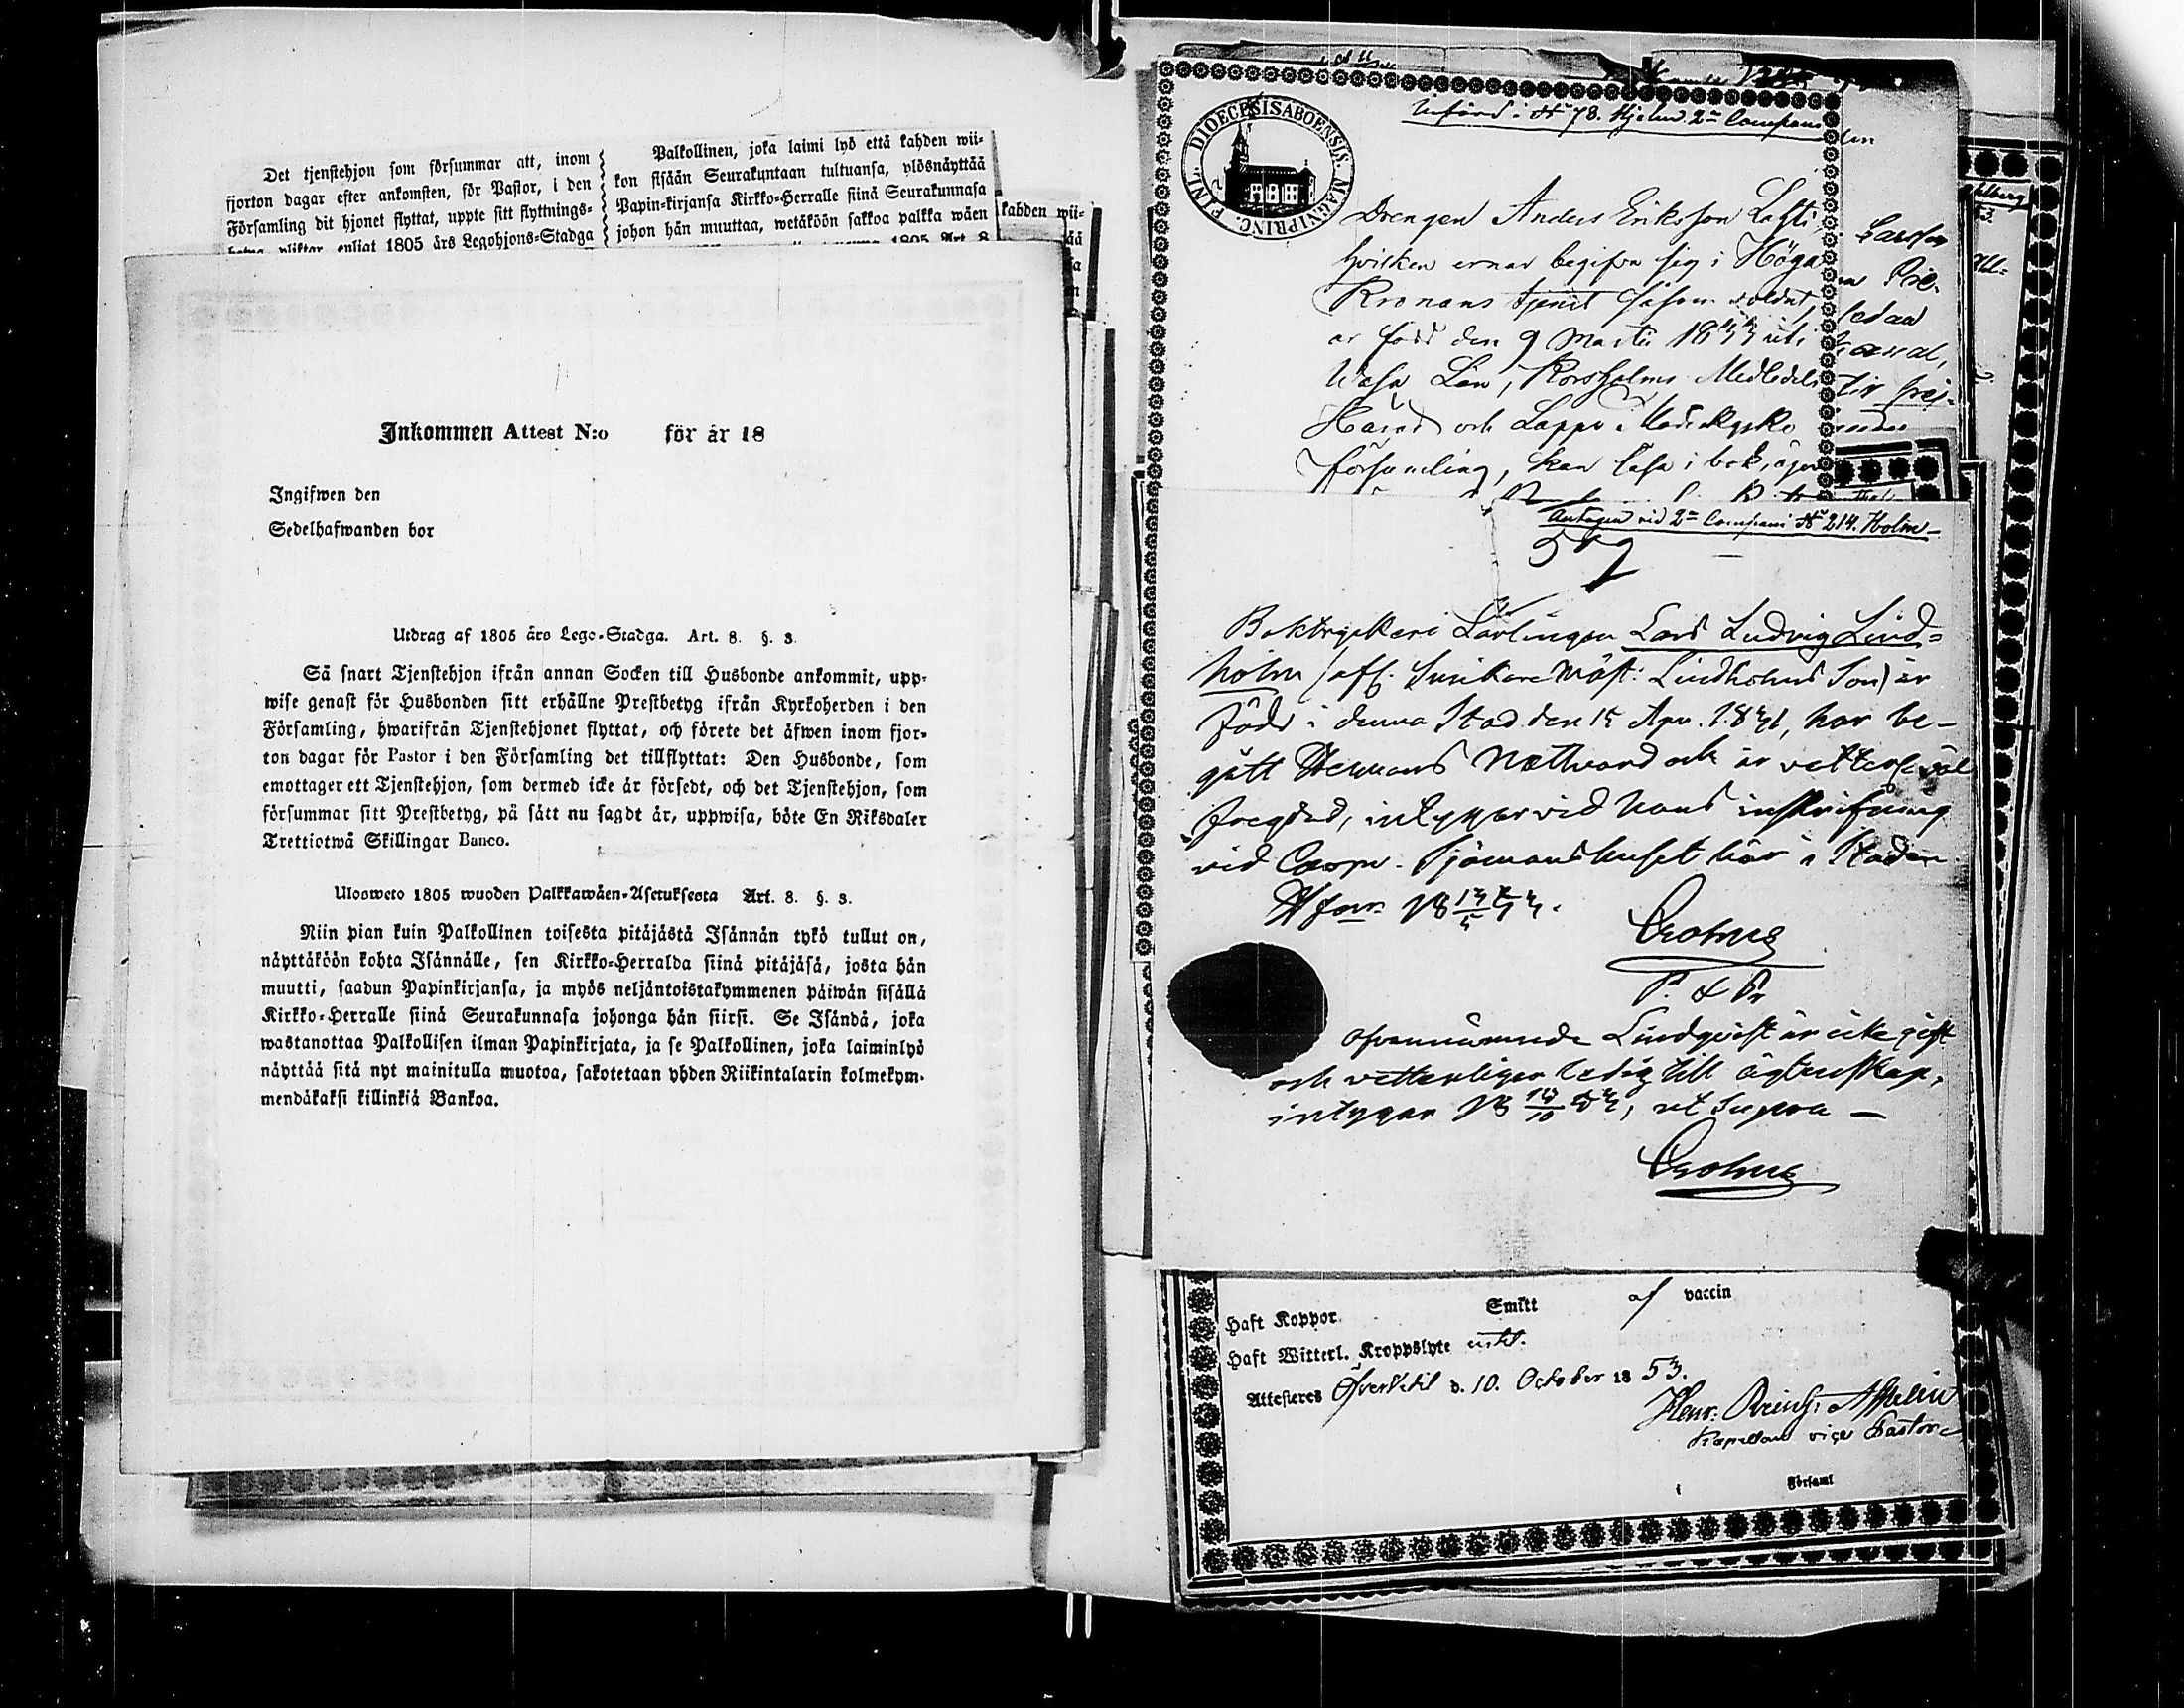 Det tjenstehjon som försummar att, inom
fjorton dagar efter ankomsten, för Pastor, i den
Församling dit hjonet flyttat, uppte sitt flyttnings-
pliktar enligt 1805 års Legohjons-Stadga
Palkollinen, joka laimi lyö että kahden wii-
kon sisään Seurakuntaan tultuansa, ylösnäyttää
Papin-kirjansa Kirkko-Herralle siinä Seurakunnasa
johon hän muuttaa, wetäköön sakkoa palkka wäen
1805 Art. 8
kahden wii-
Inkommen Attest N:o för år 18
Ingifwen den
Sedelhafwanden bor
Utdrag af 1805 års Lego-Stadga. Art. 8. §. 3.
Så snart Tjenstehjon ifrån annan Socken till Husbonde ankommit, upp-
wise genast för Husbonden sitt erhållne Prestbetyg ifrån Kyrkoherden i den
Församling, hwarifrån Tjenstehjonet flyttat, och förete det äfwen inom fjor-
ton dagar för Pastor i den Församling det tillflyttat: Den Husbonde, som
emottager ett Tjenstehjon, som dermed icke är försedt, och det Tjenstehjon, som
försummar sitt Prestbetyg, på sätt nu sagdt är, uppwisa, böte En Riksdaler
Trettiotwå Skillingar Banco.
Ulosweto 1805 wuoden Palkkawäen-Asetuksesta Art. 8. §. 3.
Niin pian kuin Palkollinen toisesta pitäjästä Isännän tykö tullut on,
näyttäköön kohta Isännälle, sen Kirkko-Herralda siinä pitäjäsä, josta hän
muutti, saadun Papinkirjansa, ja myös neljäntoistakymmenen päiwän sisällä
Kirkko-Herralle siinä Seurakunnasa johonga hän siirsi. Se Isändä, joka
wastanottaa Palkollisen ilman Papinkirjata, ja se Palkollinen, joka laiminlyö
näyttää sitä nyt mainitulla muotoa, sakotetaan yhden Riikintalarin kolmekym-
mendäkaksi killinkiä Bankoa.
Införd i No 78. Hjelm 2a Compani
DIOECESIS ABOENSIS. MAGNI PRINC. FINL.
Drengen Anders Eriksson Lahti
hvilken ernar begifva sig i Höga
Kronans tjenst såsom soldat,
är född den 9 Martii 1833 uti
Wasa Län, Korsholms Medledels
Härad och Lappo Moderkyrko
församling, kan läsa i bok, äger
Antagen vid 2a Compani No 214. Holm
Boktryckeri Lärlingen Lars Ludvig Lind-
holm (afl. Snikare Mäst: Lindholms Son) är
född i denna Stad den 15 Apr. 1831, har be-
gått Herrans Nattvard och är vetterl. väl
fregdad, intygar vid hans inskrifning
vid Comp. Sjömanshuset här i Staden
Crohns
P. & Pr
Ofvannämnde Lindqvist är icke gift
och vetterligen ledig till ägtenskap,
intygar ut supra —
Crohns
Haft Koppor. Smitt af vaccin
Haft Witterl. Kroppslyte intet.
Attesteres Öfvervetil d. 10. October 1853.
Kapellan vice Pastor
i Församl